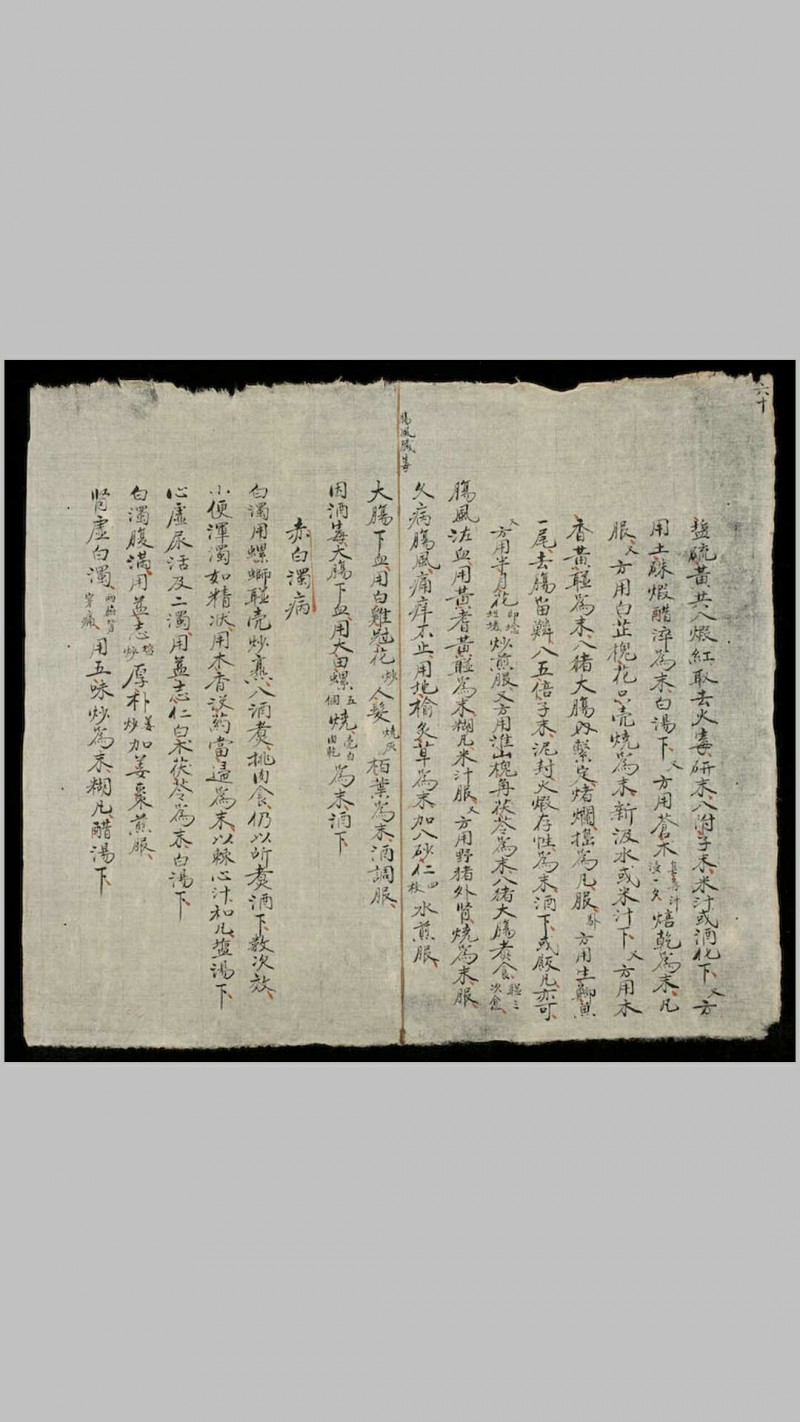 六十
塩硫黃共入煆紅取去火毒研末入附子末米汁或酒化下又方
用土硃煆醋淬為末白湯下又方用蒼朮 浸一夂 焙乾為末凡
服又方用白芷槐花只壳燒為末新汲水或米汁下又方用木
香黃蓮為末入猪大腸內繫定煑爛搗為凡服外方用生鯽魚
一尾去腸留鱗入五倍子末泥封火煆存性為末酒下或飯凡亦可
又方用半月花 炒煎服又方用淮山槐角茯苓為末入猪大腸煑食
腸風泣血用黃耆黃蓮為末糊凡米汁服又方用野猪外腎燒為末服
久病腸風痛痒不止用地榆炙草為末加入砂仁四枚水煎服
腸風臟毒
大腸下血用白雞冠花炒人髮燒灰栢葉為末酒調服
因酒毒大腸下血用大田螺五個燒壳白肉乾為末酒下
赤白濁病
白濁用螺螄壳炒熏入酒煑挑肉食仍以所煑酒下数次效
小便渾濁如精狀用木香没药當歸為末以棘心汁和凡塩湯下
心虛尿活及二濁用益志仁白朮茯苓為末白湯下
白濁腹滿用益志炒厚朴姜炒加姜棗煎服
腎虛白濁 用五味炒為末糊凡醋湯下